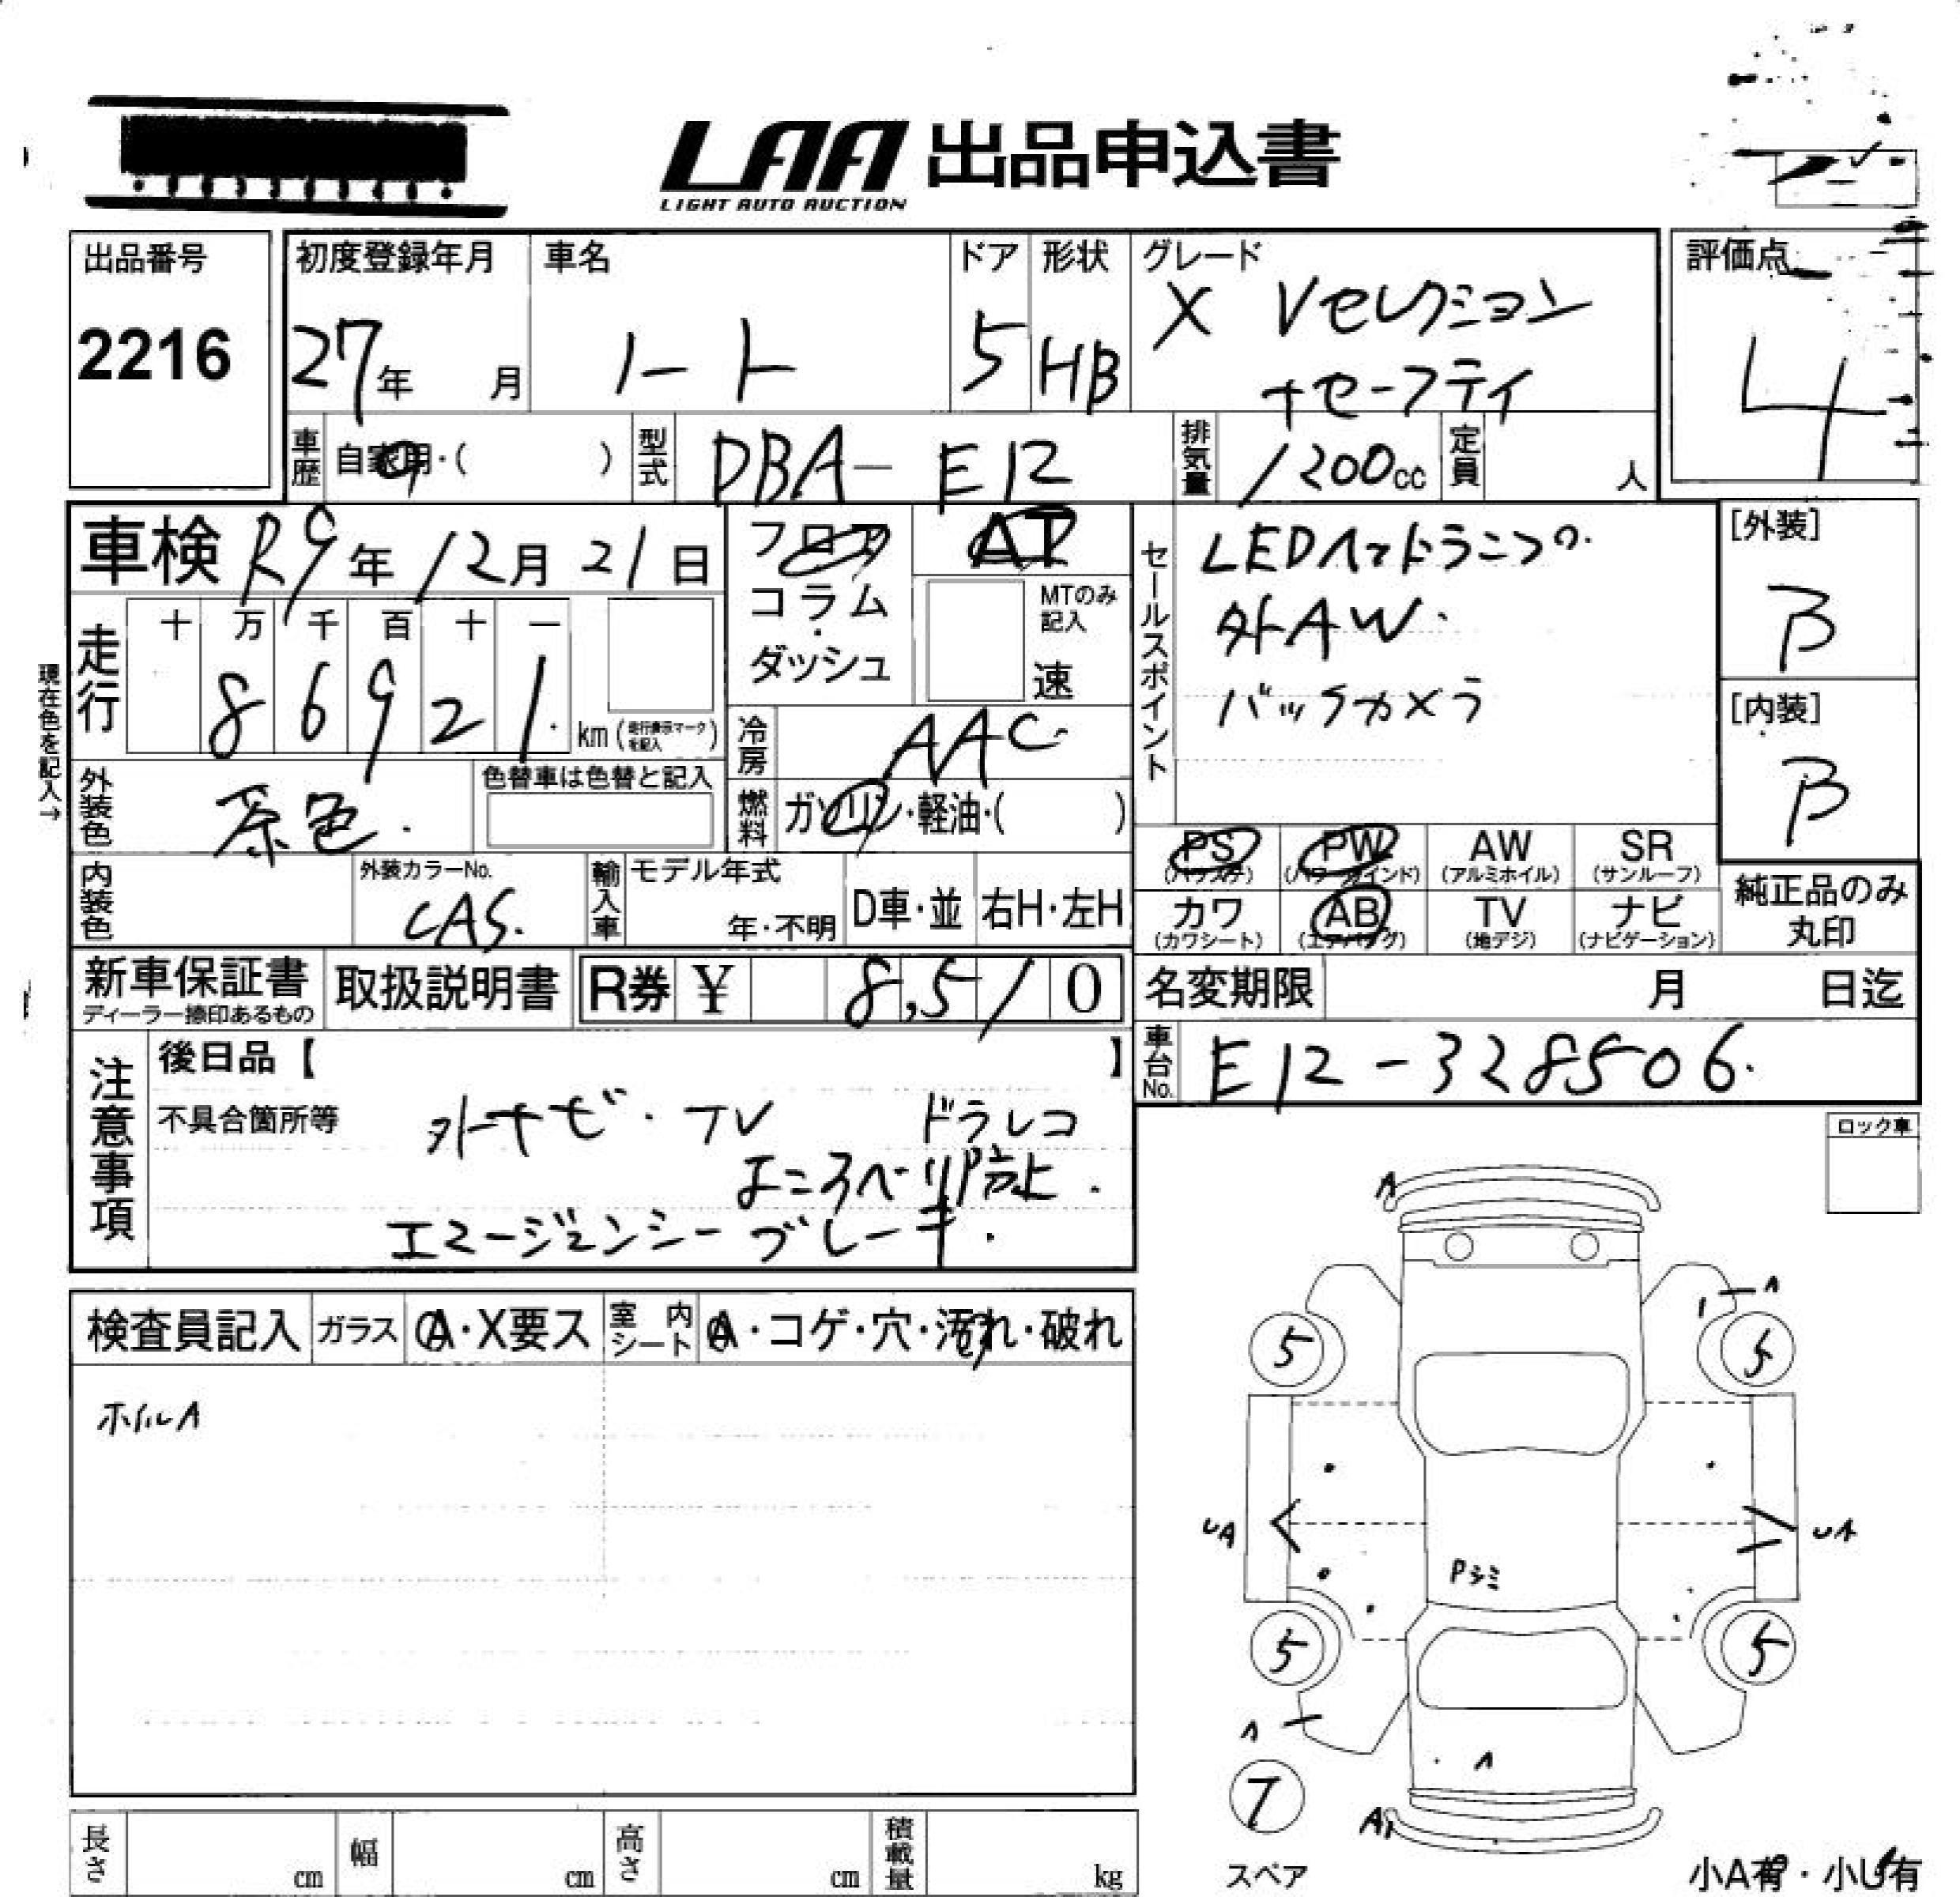 LAA 出品申込書
LIGHT AUTO AUCTION
出品番号
2216
初度登録年月
27年 月
車名
ノート
ドア
5
形状
HB
グレード
X Vセレクション
+セーフティ
評価点
4
車歴 自家用・( )
型式 DBA-E12
排気量 1200cc
定員 人
車検 R9年12月21日
走行
十 万 千 百 十 一
8 6 9 2 1
km(走行表示マークを記入)
現在色を記入→
外装色 茶色.
色替車は色替と記入
内装色
外装カラーNo.
CAS.
フロア
コラム
・
ダッシュ
AT
MTのみ
記入
速
冷房 AAC
燃料 ガソリン・軽油・( )
輸入車
モデル年式
年・不明
D車・並
右H・左H
セールスポイント
LEDヘッドランプ.
外AW.
バックカメラ
[外装]
B
[内装]
B
PS (パワステ)
PW (パワーウインド)
AW (アルミホイル)
SR (サンルーフ)
カワ (カワシート)
AB (エアバッグ)
TV (地デジ)
ナビ (ナビゲーション)
純正品のみ
丸印
新車保証書
ディーラー捺印あるもの
取扱説明書
R券 ¥ 8,510
名変期限 月 日迄
車台No. E12-328506.
注意事項
後日品【 】
不具合箇所等
外ナビ.TV ドラレコ
よころべり防止.
エマージェンシーブレーキ.
ロック車
検査員記入
ガラス A・X要ス
室内シート A・コゲ・穴・汚れ・破れ
ホイルA
A
A
5
5
UA
UA
Pシミ
5
5
A
A
7
スペア
A
小A有・小U有
長さ cm
幅 cm
高さ cm
積載量 kg